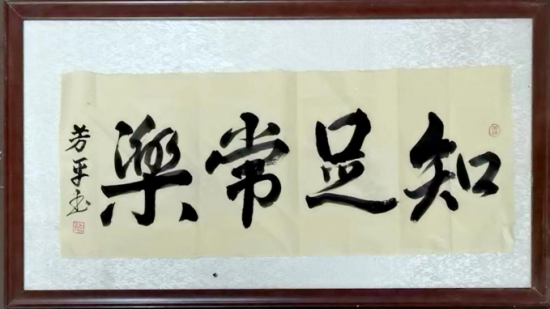 知足常樂
芳平书